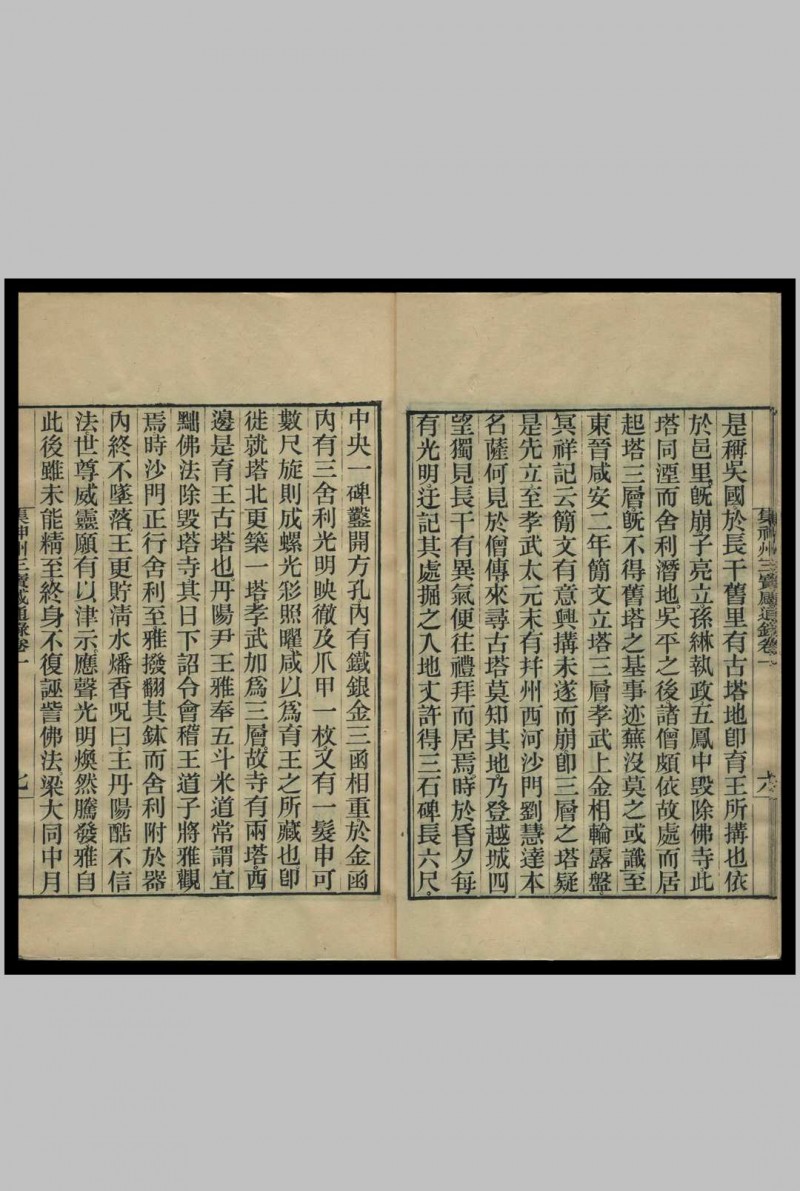 集神州三寶感通錄卷一
六
是稱吳國於長干舊里有古塔地卽育王所搆也依
於邑里旣崩子亮立孫綝執政五鳳中毀除佛寺此
塔同湮而舍利潛地吳平之後諸僧頗依故處而居
起塔三層旣不得舊塔之基事迹蕪沒莫之或識至
東晉咸安二年簡文立塔三層孝武上金相輪露盤
冥祥記云簡文有意興搆未遂而崩卽三層之塔疑
是先立至孝武太元末有并州西河沙門劉慧達本
名薩何見於僧傳來尋古塔莫知其地乃登越城四
望獨見長干有異氣便往禮拜而居焉時於昏夕每
有光明迂記其處掘之入地丈許得三石碑長六尺
中央一碑鑿開方孔內有鐵銀金三函相重於金函
內有三舍利光明映徹及爪甲一枚又有一髮申可
數尺旋則成螺光彩照曜咸以爲育王之所藏也卽
徙就塔北更築一塔孝武加爲三層故寺有兩塔西
邊是育王古塔也丹陽尹王雅奉五斗米道常謂宜
黜佛法除毀塔寺其日下詔令會稽王道子將雅觀
焉時沙門正行舍利至雅撥翻其鉢而舍利附於器
內終不墜落王更貯淸水燔香呪曰王丹陽酷不信
法世尊威靈願有以津示應聲光明煥然騰發雅自
此後雖未能精至終身不復誣訾佛法梁大同中月
集神州三寶感通錄卷一
七